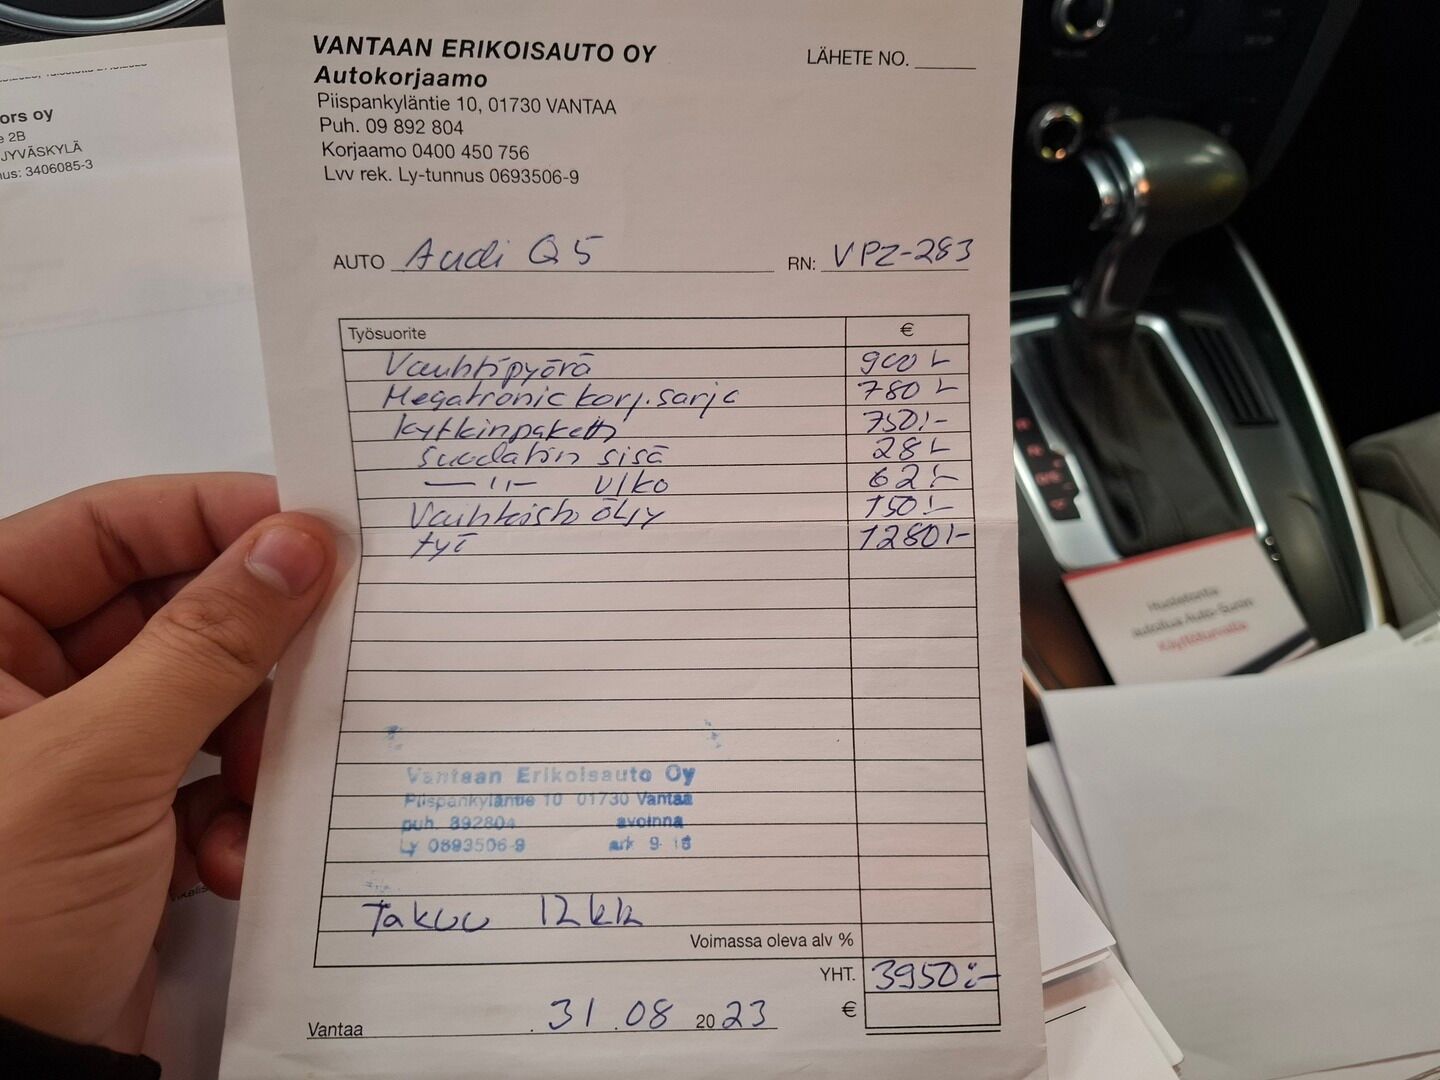 VANTAAN ERIKOISAUTO OY
Autokorjaamo
Piispankyläntie 10, 01730 VANTAA
Puh. 09 892 804
Korjaamo 0400 450 756
Lvv rek. Ly-tunnus 0693506-9
LÄHETE NO.
ors oy
e 2B
JYVÄSKYLÄ
nus: 3406085-3
AUTO Audi Q5 RN: VPZ-283
Työsuorite €
Vauhtipyörä 900:-
Megatronic korj.sarja 780:-
kytkinpaketti 750:-
suodatin sisä 28:-
—"— ulko 62:-
Vaihteisto öljy 150:-
työ 1280:-
Vantaan Erikoisauto Oy
Piispankyläntie 10 01730 Vantaa
puh. 892804 avoinna
Ly 0693506-9 ark 9-16
Takuu 12kk
Voimassa oleva alv %
YHT. 3950:-
€
Vantaa 31.08 2023
Huoletonta
autoilua Auto-Suxin
Käyttöturvalla